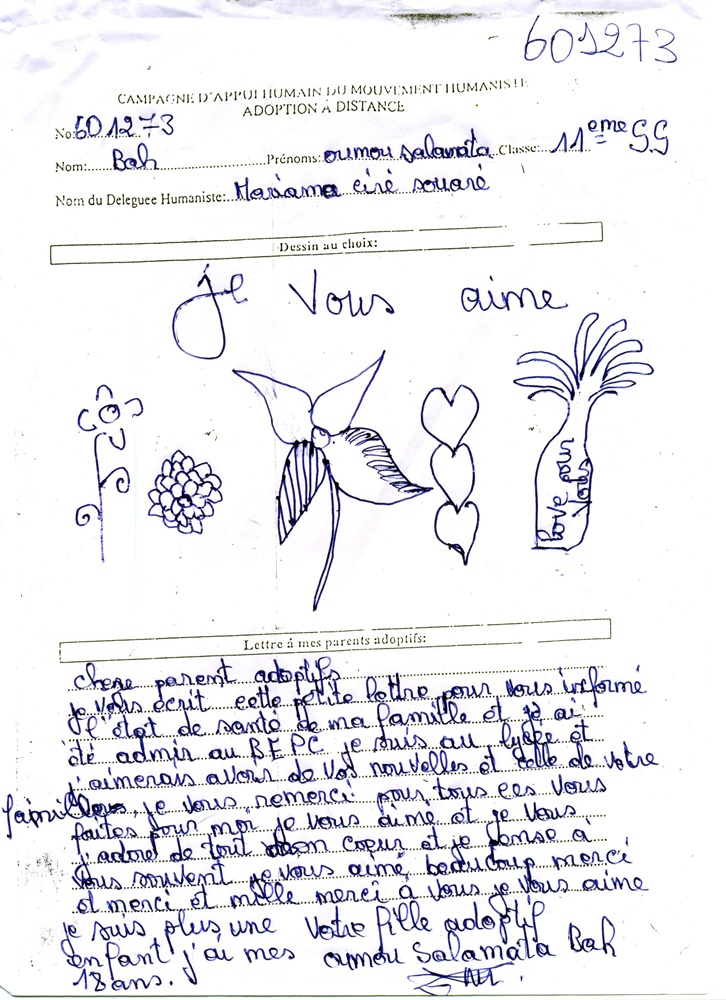 601273
CAMPAGNE D'APPUI HUMAIN DU MOUVEMENT HUMANISTE
ADOPTION A DISTANCE
No: 601273
Nom: Bah Prénoms: oumou Salamata Classe: 11eme SS
Nom du Deleguee Humaniste: Mariama ciré souaré
Dessin au choix:
Je Vous aime
Love pour Vous
Lettre á mes parents adoptifs:
chere parent adoptifs
je vous écrit cette petite lettre pour vous informé
d l'état de santé de ma famille et je ai
été admir au BEPC je suis au lycée et
j'aimerais avoir de vos nouvelles et celle de votre
famille je vous remerci pour tous ces vous
faites pour moi je vous aime et je vous
j'adore de tout mon coeur et je panse à
vous souvent je vous aimé beaucoup merci
et merci et mille merci à vous je vous aime
je suis plus une Votre fille adoptif
enfant j'ai mes oumou Salamata Bah
18 ans.